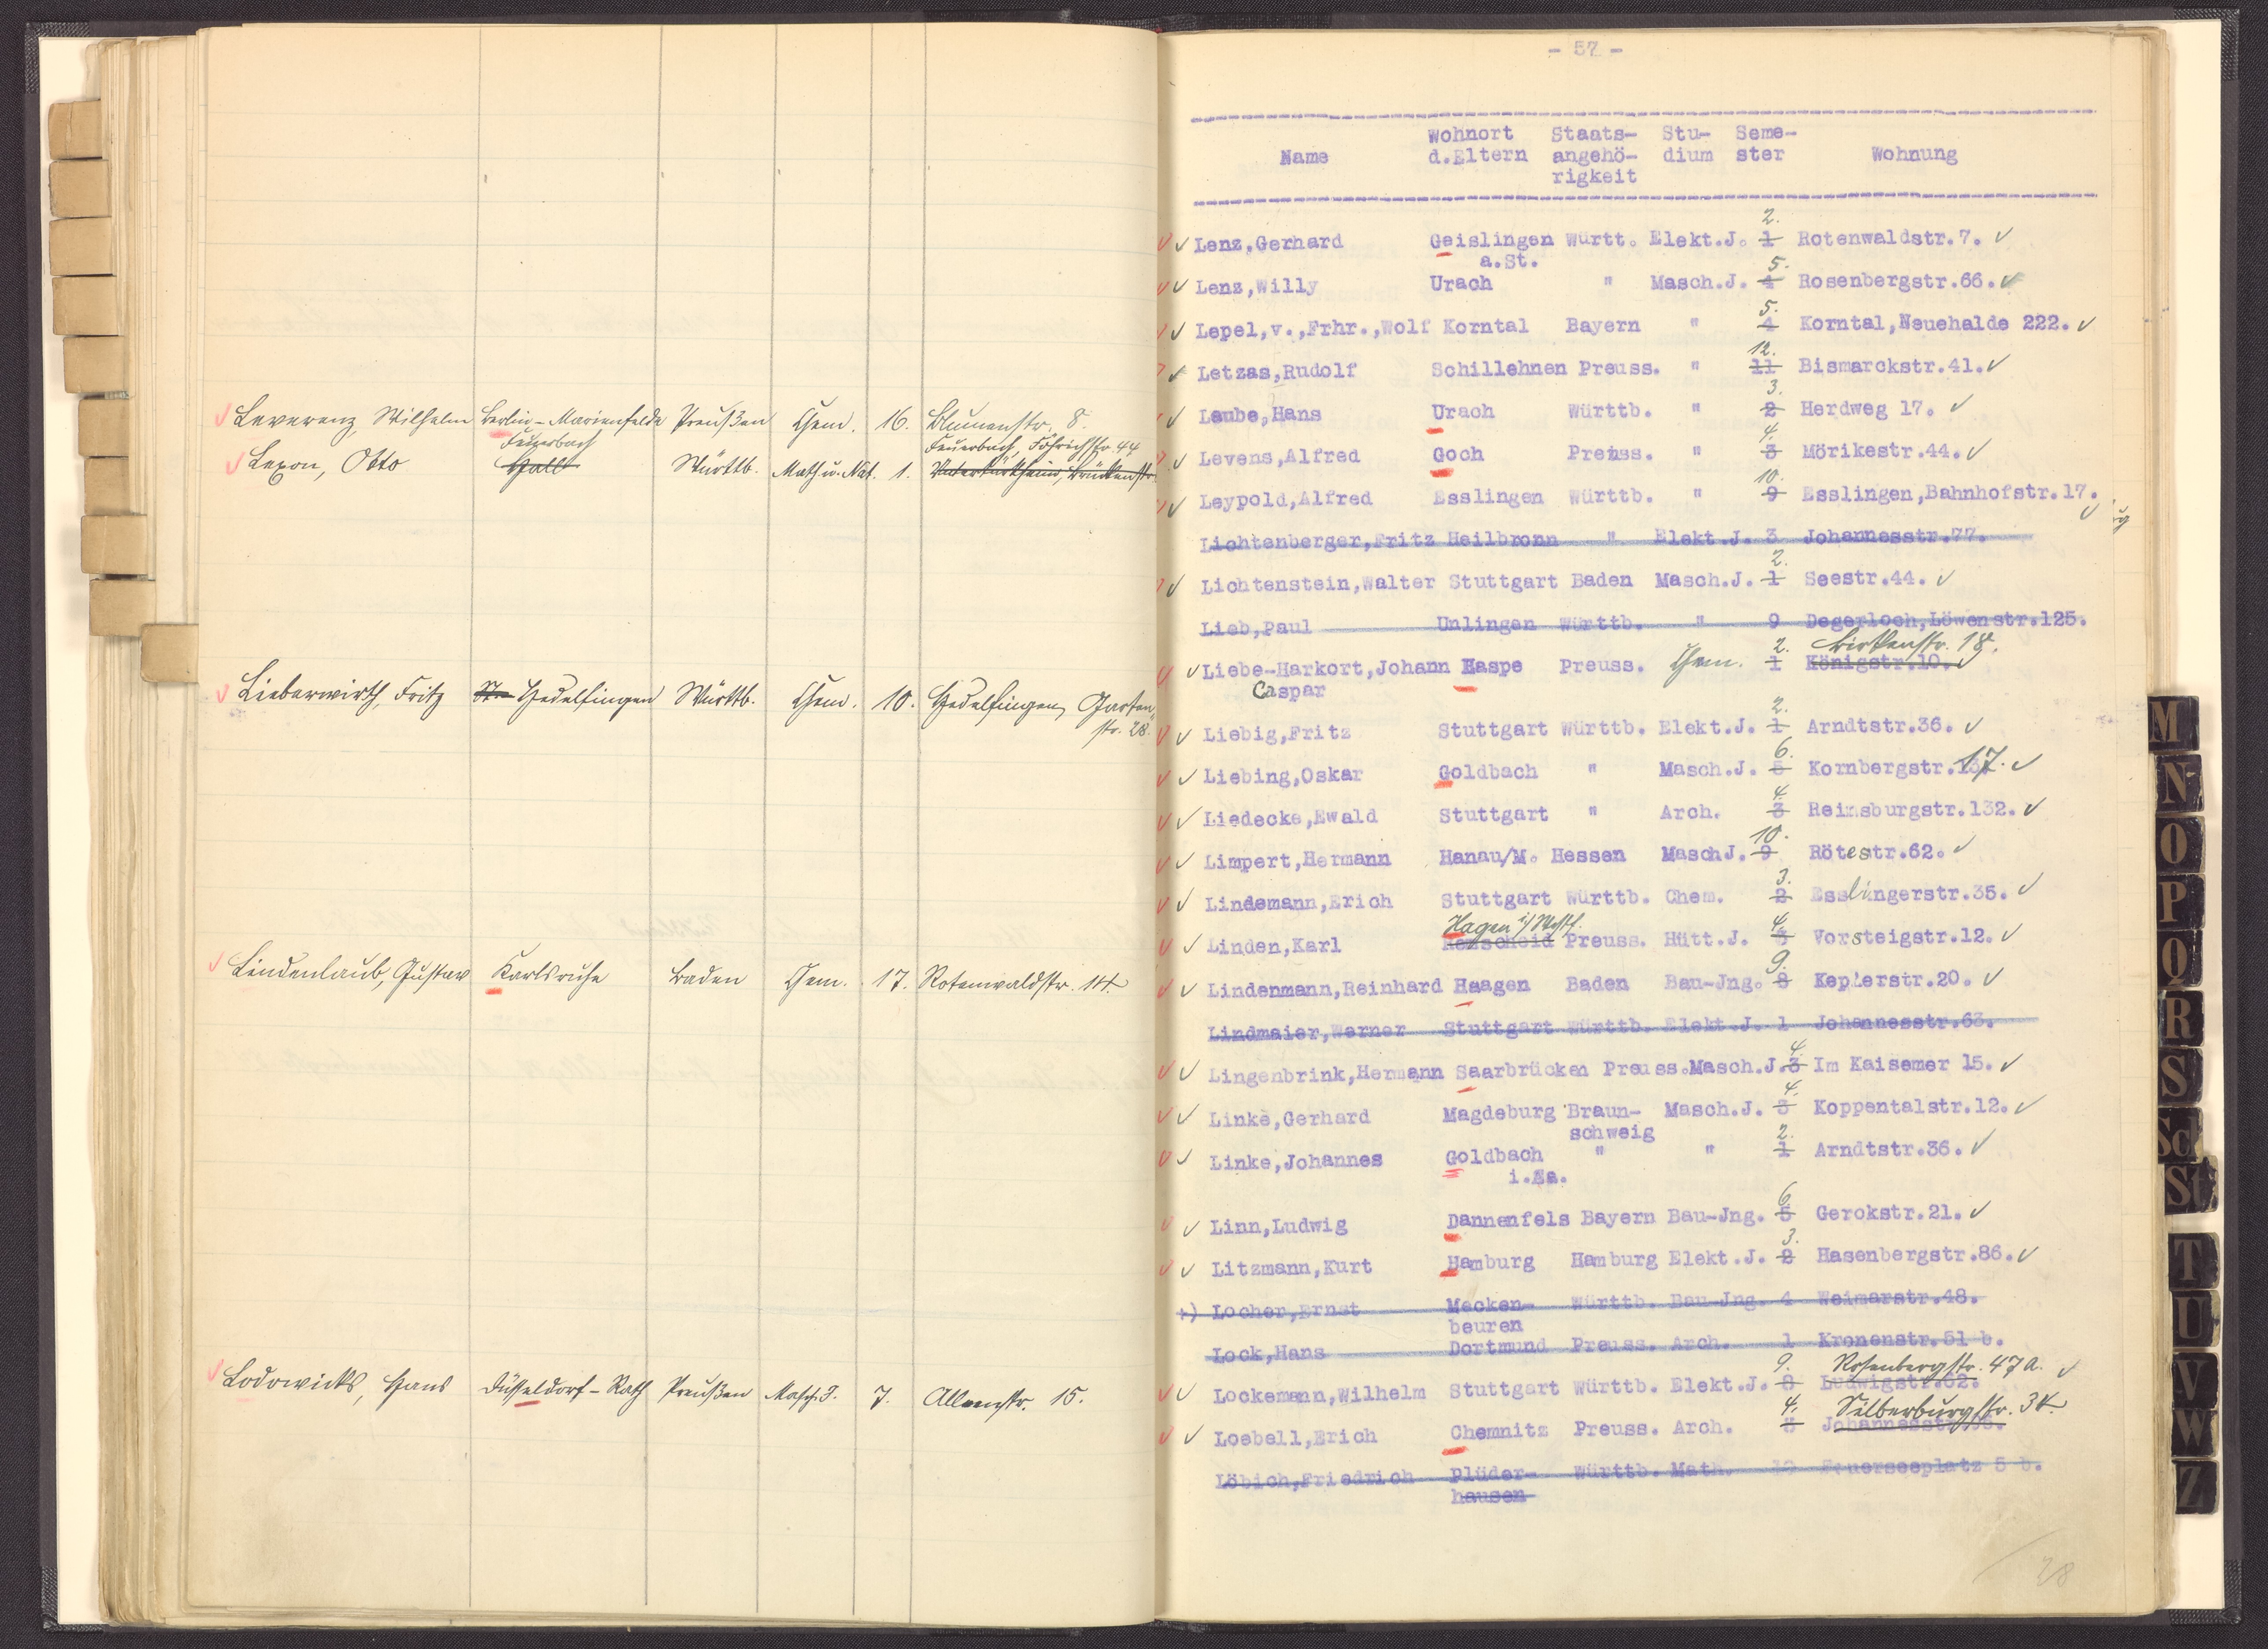 Leverenz, Wilhelm Berlin-Marienfelde Preußen Chem. 16. Blumenstr. 8.
Feuerbach Feuerbach, Föhrichstr. 44
Lexon, Otto Hall Württb. Math. u. Nat. 1. Untertürkheim, Brückenstr.
Lieberwirth, Fritz St. Hedelfingen Württb. Chem. 10. Hedelfingen, Garten-
str. 28.
Lindenlaub, Gustav Karlsruhe Baden Chem. 17. Rotenwaldstr. 14.
Lodowicks, Hans Düsseldorf-Rath Preußen Masch. I. 7. Alleenstr. 15.
- 57 -
Wohnort Staats- Stu- Seme-
Name d.Eltern angehö- dium ster Wohnung
rigkeit
2.
Lenz,Gerhard Geislingen Württ. Elekt.J. 1 Rotenwaldstr.7.
a.St. 5.
Lenz,Willy Urach " Masch.J. 4 Rosenbergstr.66.
5.
Lepel,v.,Frhr.,Wolf Korntal Bayern " 4 Korntal,Neuehalde 222.
12.
Letzas,Rudolf Schillehnen Preuss. " 11 Bismarckstr.41.
3.
Leube,Hans Urach Württb. " 2 Herdweg 17.
4.
Levens,Alfred Goch Preuss. " 3 Mörikestr.44.
10.
Leypold,Alfred Esslingen Württb. " 9 Esslingen,Bahnhofstr.17.
Lichtenberger,Fritz Heilbronn " Elekt.J. 3 Johannesstr.77.
2.
Lichtenstein,Walter Stuttgart Baden Masch.J. 1 Seestr.44.
Lieb,Paul Unlingen Württb. " 9 Degerloch,Löwenstr.125.
2. Birkenstr. 18.
Liebe-Harkort,Johann Haspe Preuss. Chem. 1 Königstr.10.
Caspar
2.
Liebig,Fritz Stuttgart Württb. Elekt.J. 1 Arndtstr.36.
6.
Liebing,Oskar Goldbach " Masch.J. 5 Kornbergstr.17.
4.
Liedecke,Ewald Stuttgart " Arch. 3 Reinsburgstr.132.
10.
Limpert,Hermann Hanau/M. Hessen MaschJ. 9 Rötestr.62.
3.
Lindemann,Erich Stuttgart Württb. Chem. 2 Esslingerstr.35.
Hagen i/Westf. 4.
Linden,Karl Remscheid Preuss. Hütt.J. 3 Vorsteigstr.12.
9.
Lindenmann,Reinhard Haagen Baden Bau-Jng. 8 Keplerstr.20.
Lindmaier,Werner Stuttgart Württb. Elekt.J. 1 Johannesstr.63.
4.
Lingenbrink,Hermann Saarbrücken Preuss.Masch.J.3 Im Kaisemer 15.
4.
Linke,Gerhard Magdeburg Braun- Masch.J. 3 Koppentalstr.12.
schweig 2.
Linke,Johannes Goldbach " " 1 Arndtstr.36.
i.Sa.
6.
Linn,Ludwig Dannenfels Bayern Bau-Jng. 5 Gerokstr.21.
3.
Litzmann,Kurt Hamburg Hamburg Elekt.J. 2 Hasenbergstr.86.
+) Locher,Ernst Mecken- Württb. Bau-Jng. 4 Weimarstr.48.
beuren
Lock,Hans Dortmund Preuss. Arch. 1 Kronenstr.51 b.
9. Rosenbergstr. 47A.
Lockemann,Wilhelm Stuttgart Württb. Elekt.J. 8 Ludwigstr.62.
4. Silberburgstr. 34.
Loebell,Erich Chemnitz Preuss. Arch. 3
Löbich,Friedrich Plüder- Württb. Math. Feuerseeplatz 5 b.
hausen
28
M
N
O
P
Q
R
S
Sch
St
T
U
V
W
Z